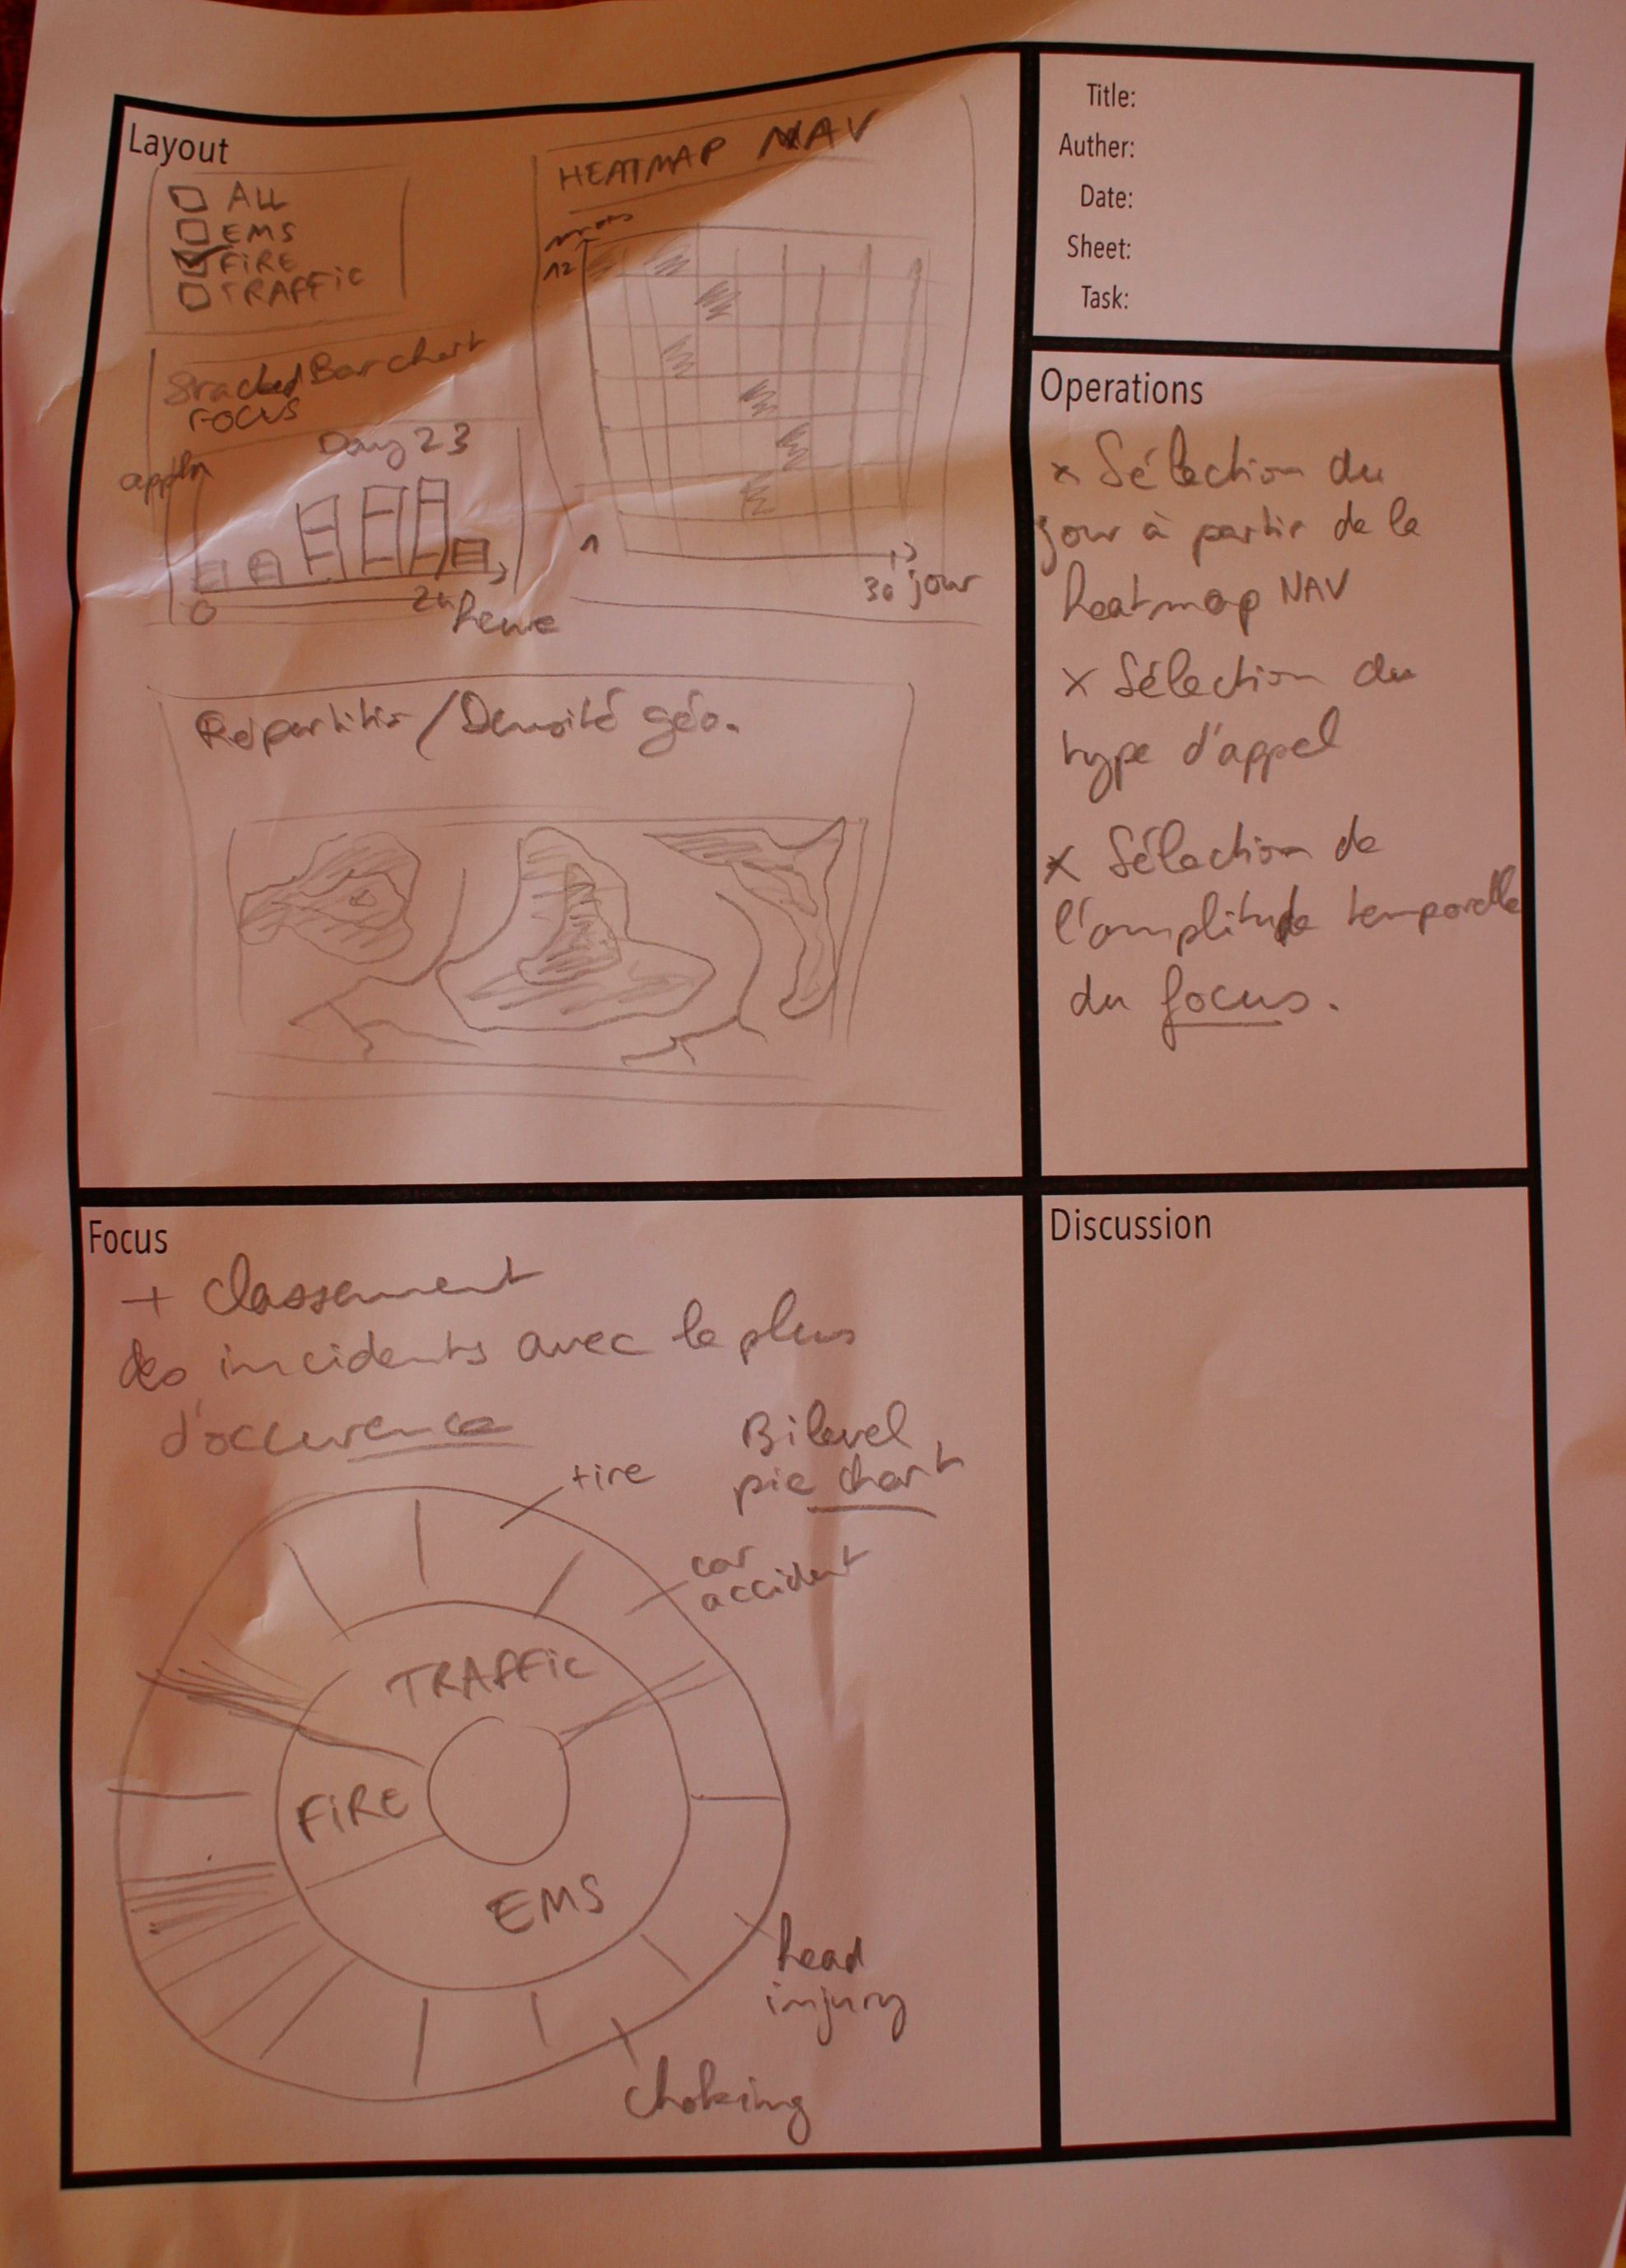 Layout
ALL
EMS
FiRE
TRAFFiC
Stacked Bar chart
FOCUS
Day 23
app/h
0
24
heure
HEATMAP NAV
mois
12
1
30 jour
Répartition / Densité géo.
Title:
Auther:
Date:
Sheet:
Task:
Operations
x Sélection du
jour à partir de la
heatmap NAV
x Sélection du
type d'appel
x Sélection de
l'amplitude temporelle
du focus.
Focus
+ classement
des incidents avec le plus
d'occurence
Bilevel
pie chart
fire
car
accident
TRAFFiC
FiRE
EMS
head
injury
choking
Discussion